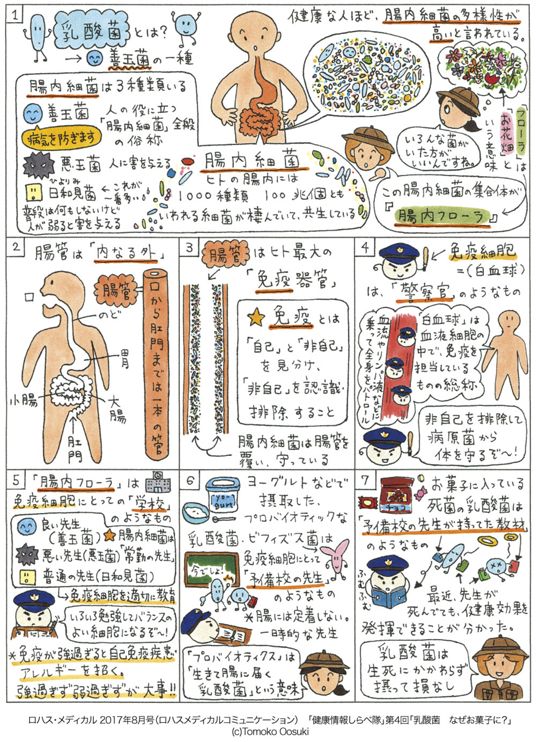 1
乳酸菌とは?
→善玉菌の一種
健康な人ほど、腸内細菌の多様性が
高いと言われている。
腸内細菌は3種類いる
善玉菌 人の役に立つ
「腸内細菌」全般
の俗称
病気を防ぎます
悪玉菌 人に害を与える
ひよりみ
日和見菌 ←これが
一番多い
普段は何もしないけど
人が弱ると害を与える
腸内細菌
ヒトの腸内には
1000種類 100兆個とも
いわれる細菌が棲んでいて、共生している
いろんな菌が
いた方が
いいんですね。
フローラ
とは
「お花畑」
という意味
この腸内細菌の集合体が
『腸内フローラ』
2
腸管は「内なる外」
口
のど
胃
小腸
大腸
肛門
腸管
口から肛門までは一本の管
3
腸管はヒト最大の
「免疫器官」
免疫とは
「自己」と「非自己」
を見分け、
「非自己」を認識・
排除すること
腸内細菌は腸管を
覆い、守っている
4
免疫細胞
=(白血球)
は、「警察官」のようなもの
血液やリンパ液などに
乗って全身をパトロール
「白血球」は
血液細胞の
中で、免疫を
担当している
ものの総称
非自己を排除して
病原菌から
体を守るぞ〜!
5
「腸内フローラ」は
免疫細胞にとっての「学校」
のようなもの
良い先生
(善玉菌)
悪い先生(悪玉菌)
普通の先生(日和見菌)
腸内細菌は
「常勤の先生」
免疫細胞を適切に教育
いろいろ勉強してバランスの
よい細胞になるぞ〜!
*免疫が強過ぎると自己免疫疾患・
アレルギーを招く。
強過ぎず弱過ぎずが大事!!
6
ヨーグルトなどで
摂取した、
プロバイオティクな
乳酸菌・ビフィズス菌は
yogurt
今でしょ!
免疫細胞にとって
「予備校の先生」
のようなもの
*腸には定着しない。
一時的な先生
「プロバイオティクス」は
「生きて腸に届く
乳酸菌」という意味
7
チョコ
お菓子に入っている
死菌の乳酸菌は
「予備校の先生が持ってた教材」
のようなもの
ふむ
ふむ
最近、先生が
死んでても、健康効果を
発揮できることが分かった。
乳酸菌は
生死にかかわらず
摂って損なし
ロハス・メディカル 2017年8月号(ロハスメディカルコミュニケーション) 「健康情報しらべ隊」第4回「乳酸菌 なぜお菓子に?」
(c)Tomoko Oosuki